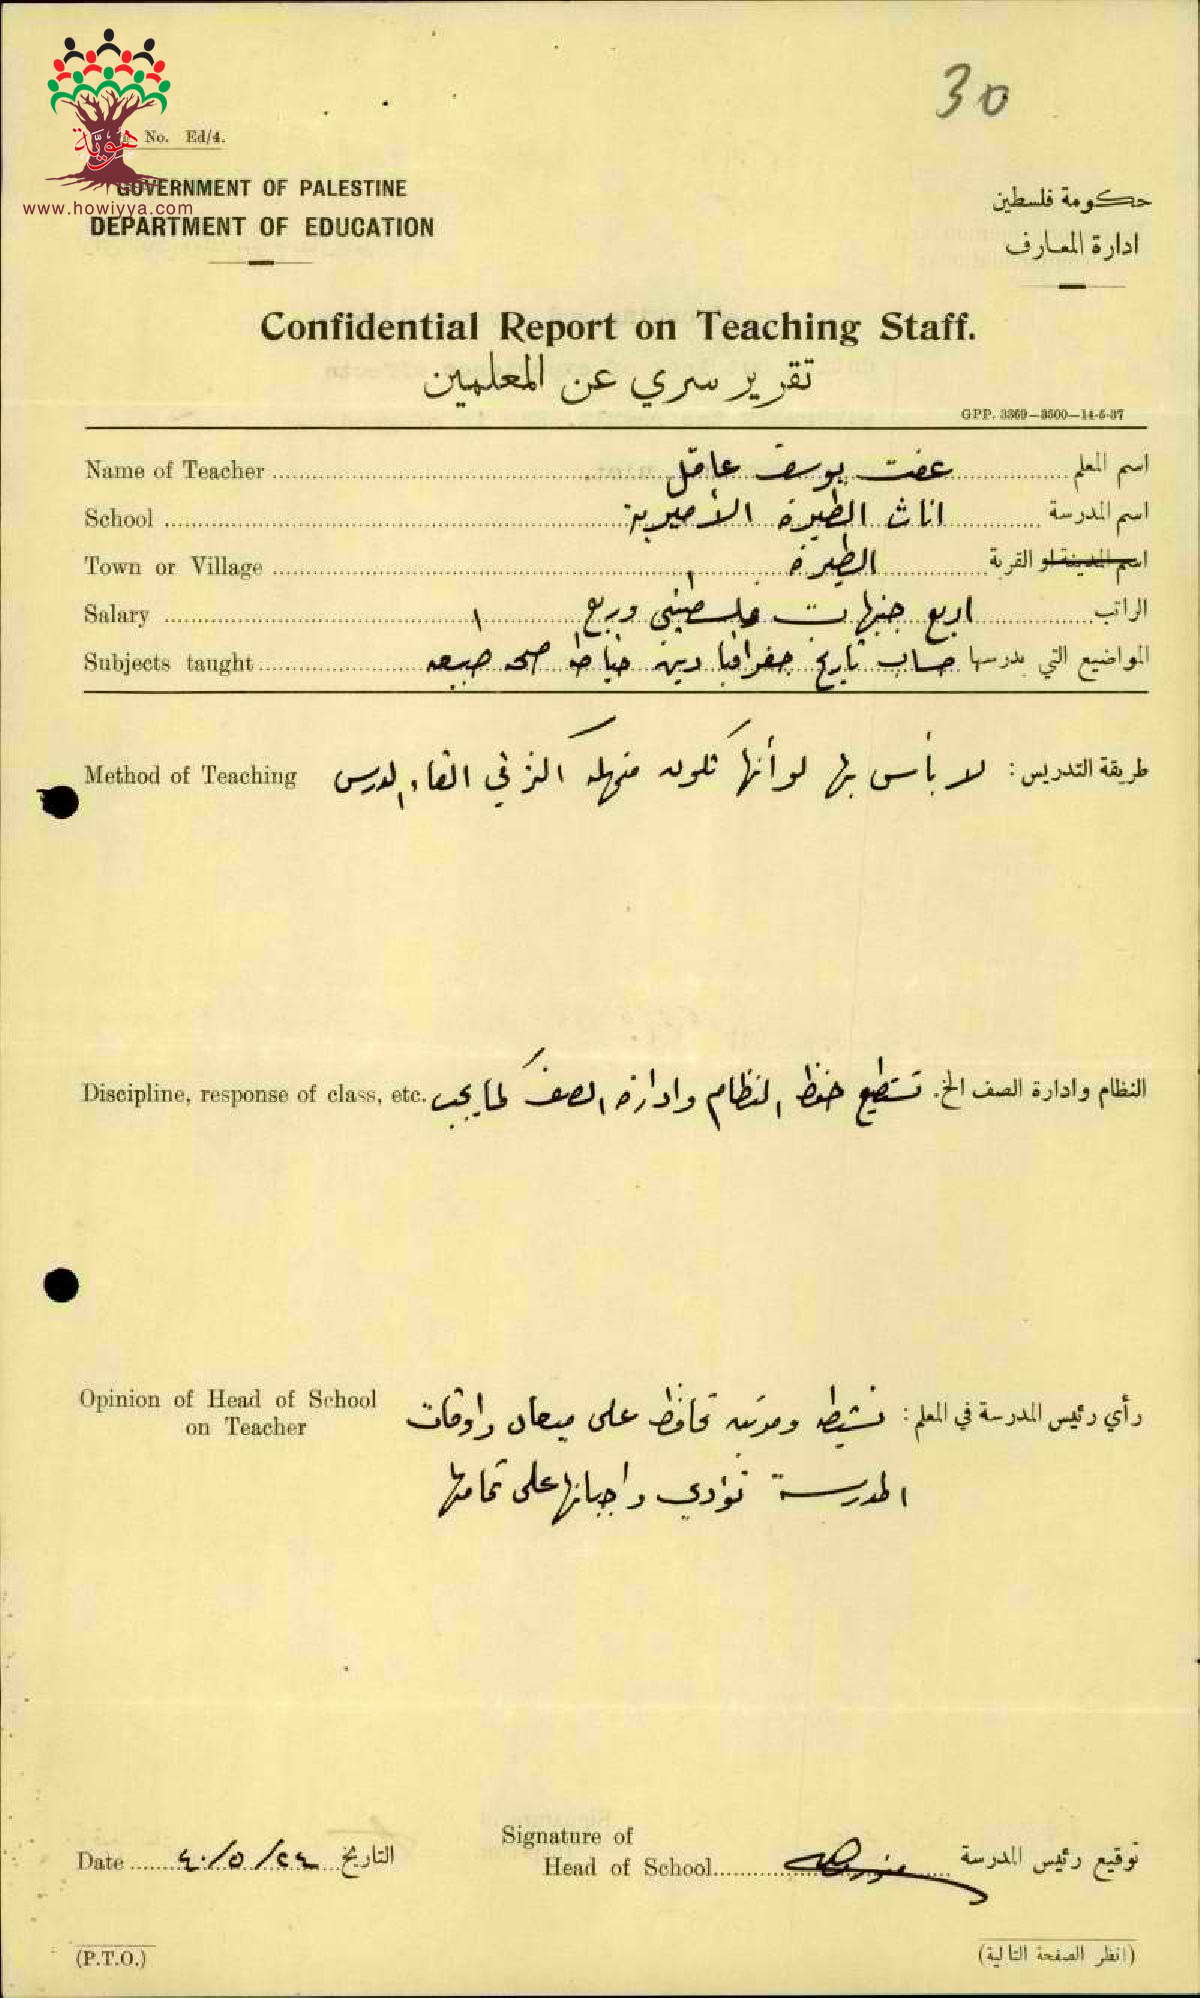 30
هويّة
www.howiyya.com
No. Ed/4.
GOVERNMENT OF PALESTINE
DEPARTMENT OF EDUCATION
حكومة فلسطين
ادارة المعارف
Confidential Report on Teaching Staff.
تقرير سري عن المعلمين
GPP. 3369—3500—14-6-37
Name of Teacher عفت يوسف عاقل اسم المعلم
School اناث الطيرة الأميرية اسم المدرسة
Town or Village الطيرة اسم المدينة او القرية
Salary اربع جنيهات فلسطيني وربع الراتب
Subjects taught حساب تاريخ جغرافيا دين خياطة صحه طبيعه المواضيع التي يدرسها
Method of Teaching لا بأس بها لو أنها تكون متمهله اكثر في القاء الدرس طريقة التدريس :
Discipline, response of class, etc. تستطيع حفظ النظام وادارة الصف كما يجب النظام وادارة الصف الخ.
Opinion of Head of School
on Teacher
رأي رئيس المدرسة في المعلم : نشيطه ومرتبه تحافظ على ميعاد واوقات
المدرسة تؤدي واجباتها على تمامها
Signature of
Head of School توقيع رئيس المدرسة
Date ٢٤/٥/٤٠ التاريخ
(P.T.O.)
(انظر الصفحة التالية)